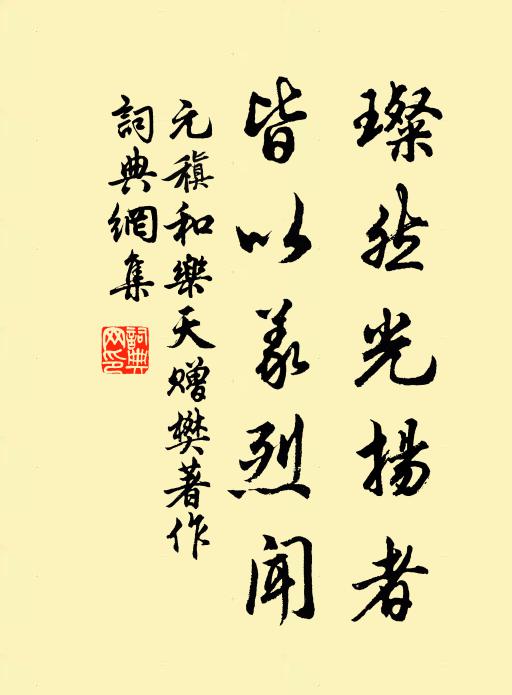 璨然光揚者
皆以義烈聞
元稹和樂天贈樊著作
詞典網集
詞典網印